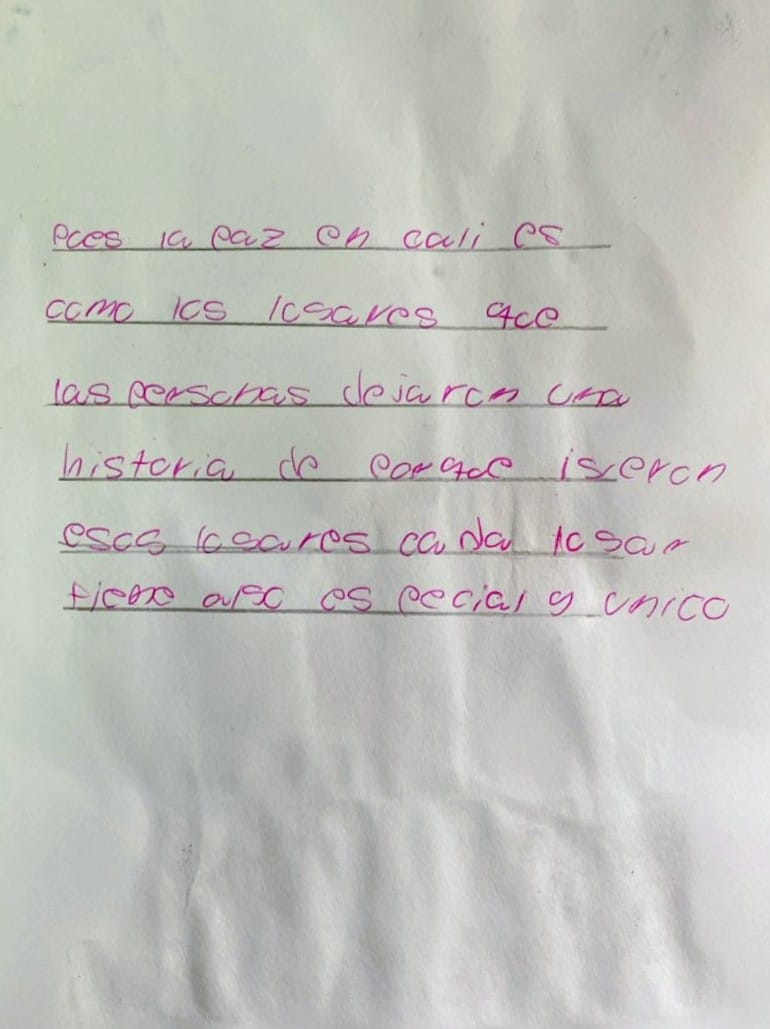 pues la paz en cali es
como los lugares que
las personas dejaron una
historia de porque isieron
esos lugares ca da lugar
tiene algo es pecial y unico